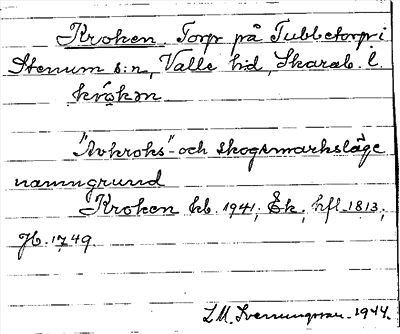 Kroken. Torp på Tubbetorp i
Stenum s:n, Valle hd, Skarab. l.
krókən
"Avkroks"- och skogsmarksläge
namngrund
Kroken kb. 1941; Ek.; hfl. 1813;
Jb. 1749.
L.M. Svenungsson. 1944.